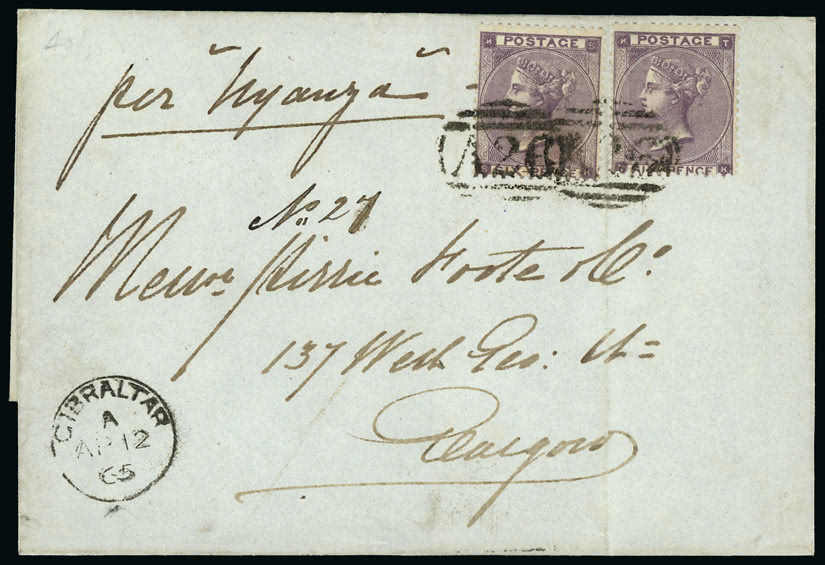 K POSTAGE S
K POSTAGE T
per "Nyanza"
SIX PENCE K
SIX PENCE K
A26
No 27
Messrs Hirrie Foote & Co.
137 West Geo: St =
Glasgow
GIBRALTAR
A
AP 12
65